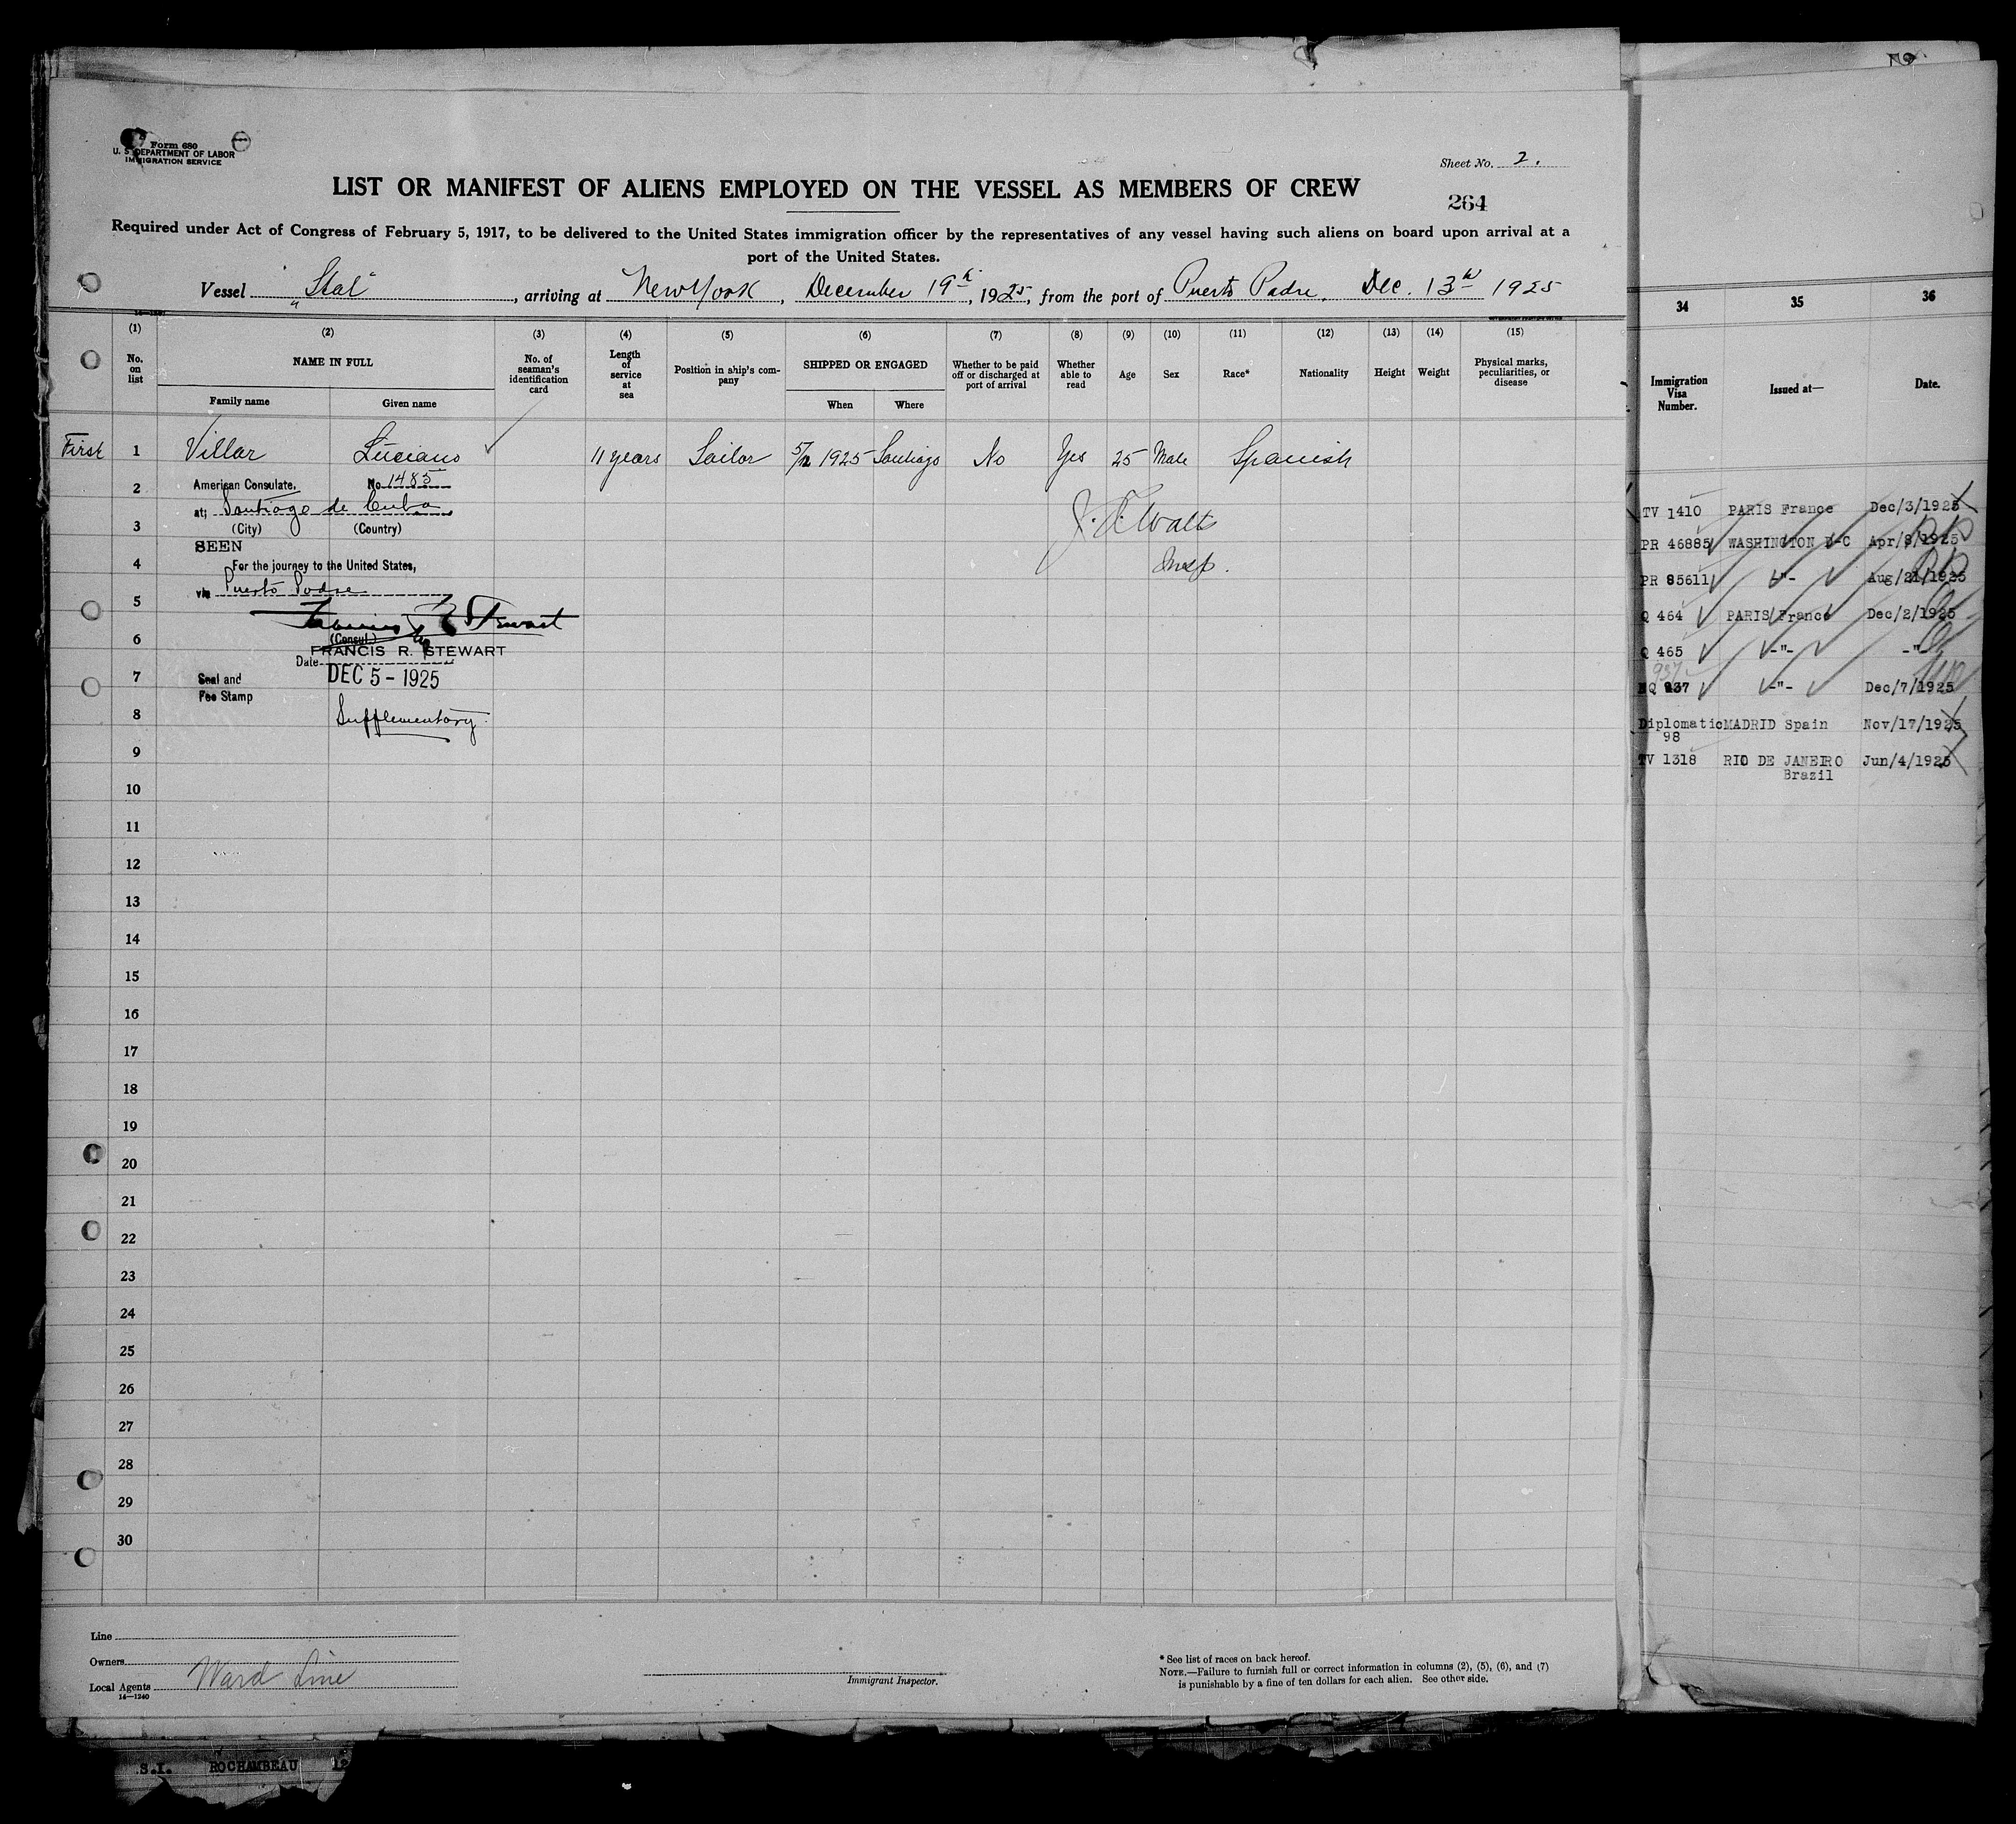 Form 680
U. S. DEPARTMENT OF LABOR
IMMIGRATION SERVICE
Sheet No. 2.
LIST OR MANIFEST OF ALIENS EMPLOYED ON THE VESSEL AS MEMBERS OF CREW
264
Required under Act of Congress of February 5, 1917, to be delivered to the United States immigration officer by the representatives of any vessel having such aliens on board upon arrival at a
port of the United States.
Vessel "Stal", arriving at New York, December 19th, 1925, from the port of Puerto Padre. Dec. 13th 1925
(1) (2) (3) (4) (5) (6) (7) (8) (9) (10) (11) (12) (13) (14) (15)
No. on list
NAME IN FULL
Family name
Given name
No. of seaman's identification card
Length of service at sea
Position in ship's company
SHIPPED OR ENGAGED
When
Where
Whether to be paid off or discharged at port of arrival
Whether able to read
Age
Sex
Race*
Nationality
Height
Weight
Physical marks, peculiarities, or disease
First 1 Villar Luciano 11 years Sailor 5/12 1925 Santiago No Yes 25 Male Spanish
2 American Consulate, No. 1485
at; Santiago de Cuba
3 (City) (Country)
SEEN
4 For the journey to the United States,
via Puerto Padre
5
6 (Consul.)
FRANCIS R. STEWART
Date DEC 5 - 1925
7 Seal and
Fee Stamp
8 Supplementary.
Insp.
9
10
11
12
13
14
15
16
17
18
19
20
21
22
23
24
25
26
27
28
29
30
Line
Owners
Local Agents Ward Line
14—1240
Immigrant Inspector.
* See list of races on back hereof.
NOTE.—Failure to furnish full or correct information in columns (2), (5), (6), and (7)
is punishable by a fine of ten dollars for each alien. See other side.
34 35 36
Immigration Visa Number.
Issued at—
Date.
TV 1410 PARIS France Dec/3/1925
PR 46885 WASHINGTON D-C Apr/8/1925
PR 85611 -"- Aug/21/1925
Q 464 PARIS France Dec/2/1925
Q 465 -"- -"-
NQ 937 -"- Dec/7/1925
Diplomatic MADRID Spain Nov/17/1925
98
TV 1318 RIO DE JANEIRO Jun/4/1925
Brazil
S.I. ROCHAMBEAU 12